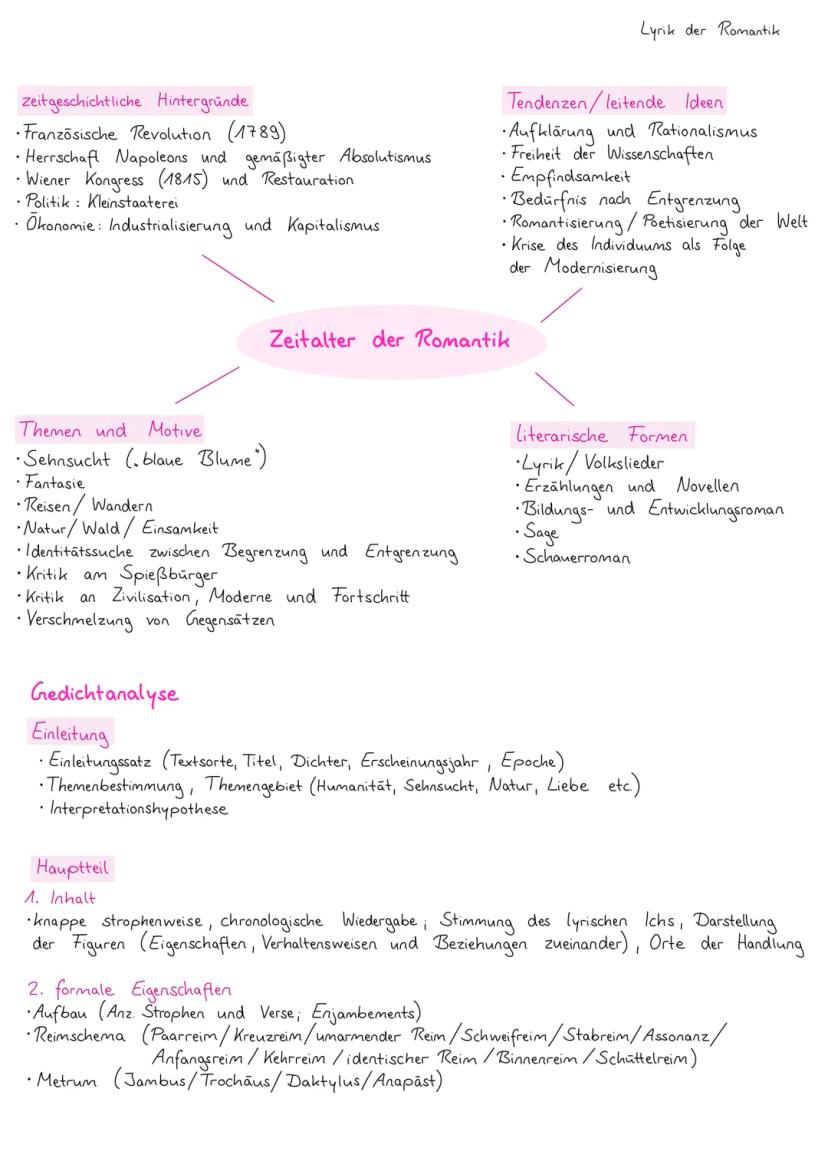 Lyrik der Romantik
zeitgeschichtliche Hintergründe
· Französische Revolution (1789)
· Herrschaft Napoleons und gemäßigter Absolutismus
· Wiener Kongress (1815) und Restauration
· Politik : Kleinstaaterei
· Ökonomie: Industrialisierung und Kapitalismus
Tendenzen/leitende Ideen
· Aufklärung und Rationalismus
· Freiheit der Wissenschaften
· Empfindsamkeit
· Bedürfnis nach Entgrenzung
· Romantisierung / Poetisierung der Welt
· Krise des Individuums als Folge
der Modernisierung
Zeitalter der Romantik
Themen und Motive
· Sehnsucht („blaue Blume“)
· Fantasie
· Reisen/ Wandern
· Natur/ Wald / Einsamkeit
· Identitätssuche zwischen Begrenzung und Entgrenzung
· Kritik am Spießbürger
· Kritik an Zivilisation, Moderne und Fortschritt
· Verschmelzung von Gegensätzen
literarische Formen
· Lyrik/ Volkslieder
· Erzählungen und Novellen
· Bildungs- und Entwicklungsroman
· Sage
· Schauerroman
Gedichtanalyse
Einleitung
· Einleitungssatz (Textsorte, Titel, Dichter, Erscheinungsjahr , Epoche)
· Themenbestimmung , Themengebiet (Humanität, Sehnsucht, Natur, Liebe etc.)
· Interpretationshypothese
Hauptteil
1. Inhalt
· knappe strophenweise , chronologische Wiedergabe ; Stimmung des lyrischen Ichs, Darstellung
der Figuren (Eigenschaften, Verhaltensweisen und Beziehungen zueinander) , Orte der Handlung
2. formale Eigenschaften
· Aufbau (Anz. Strophen und Verse; Enjambements)
· Reimschema (Paarreim/Kreuzreim/umarmender Reim/Schweifreim/Stabreim/Assonanz/
Anfangsreim / Kehrreim / identischer Reim / Binnenreim / Schüttelreim)
· Metrum (Jambus/Trochäus/ Daktylus/Anapäst)